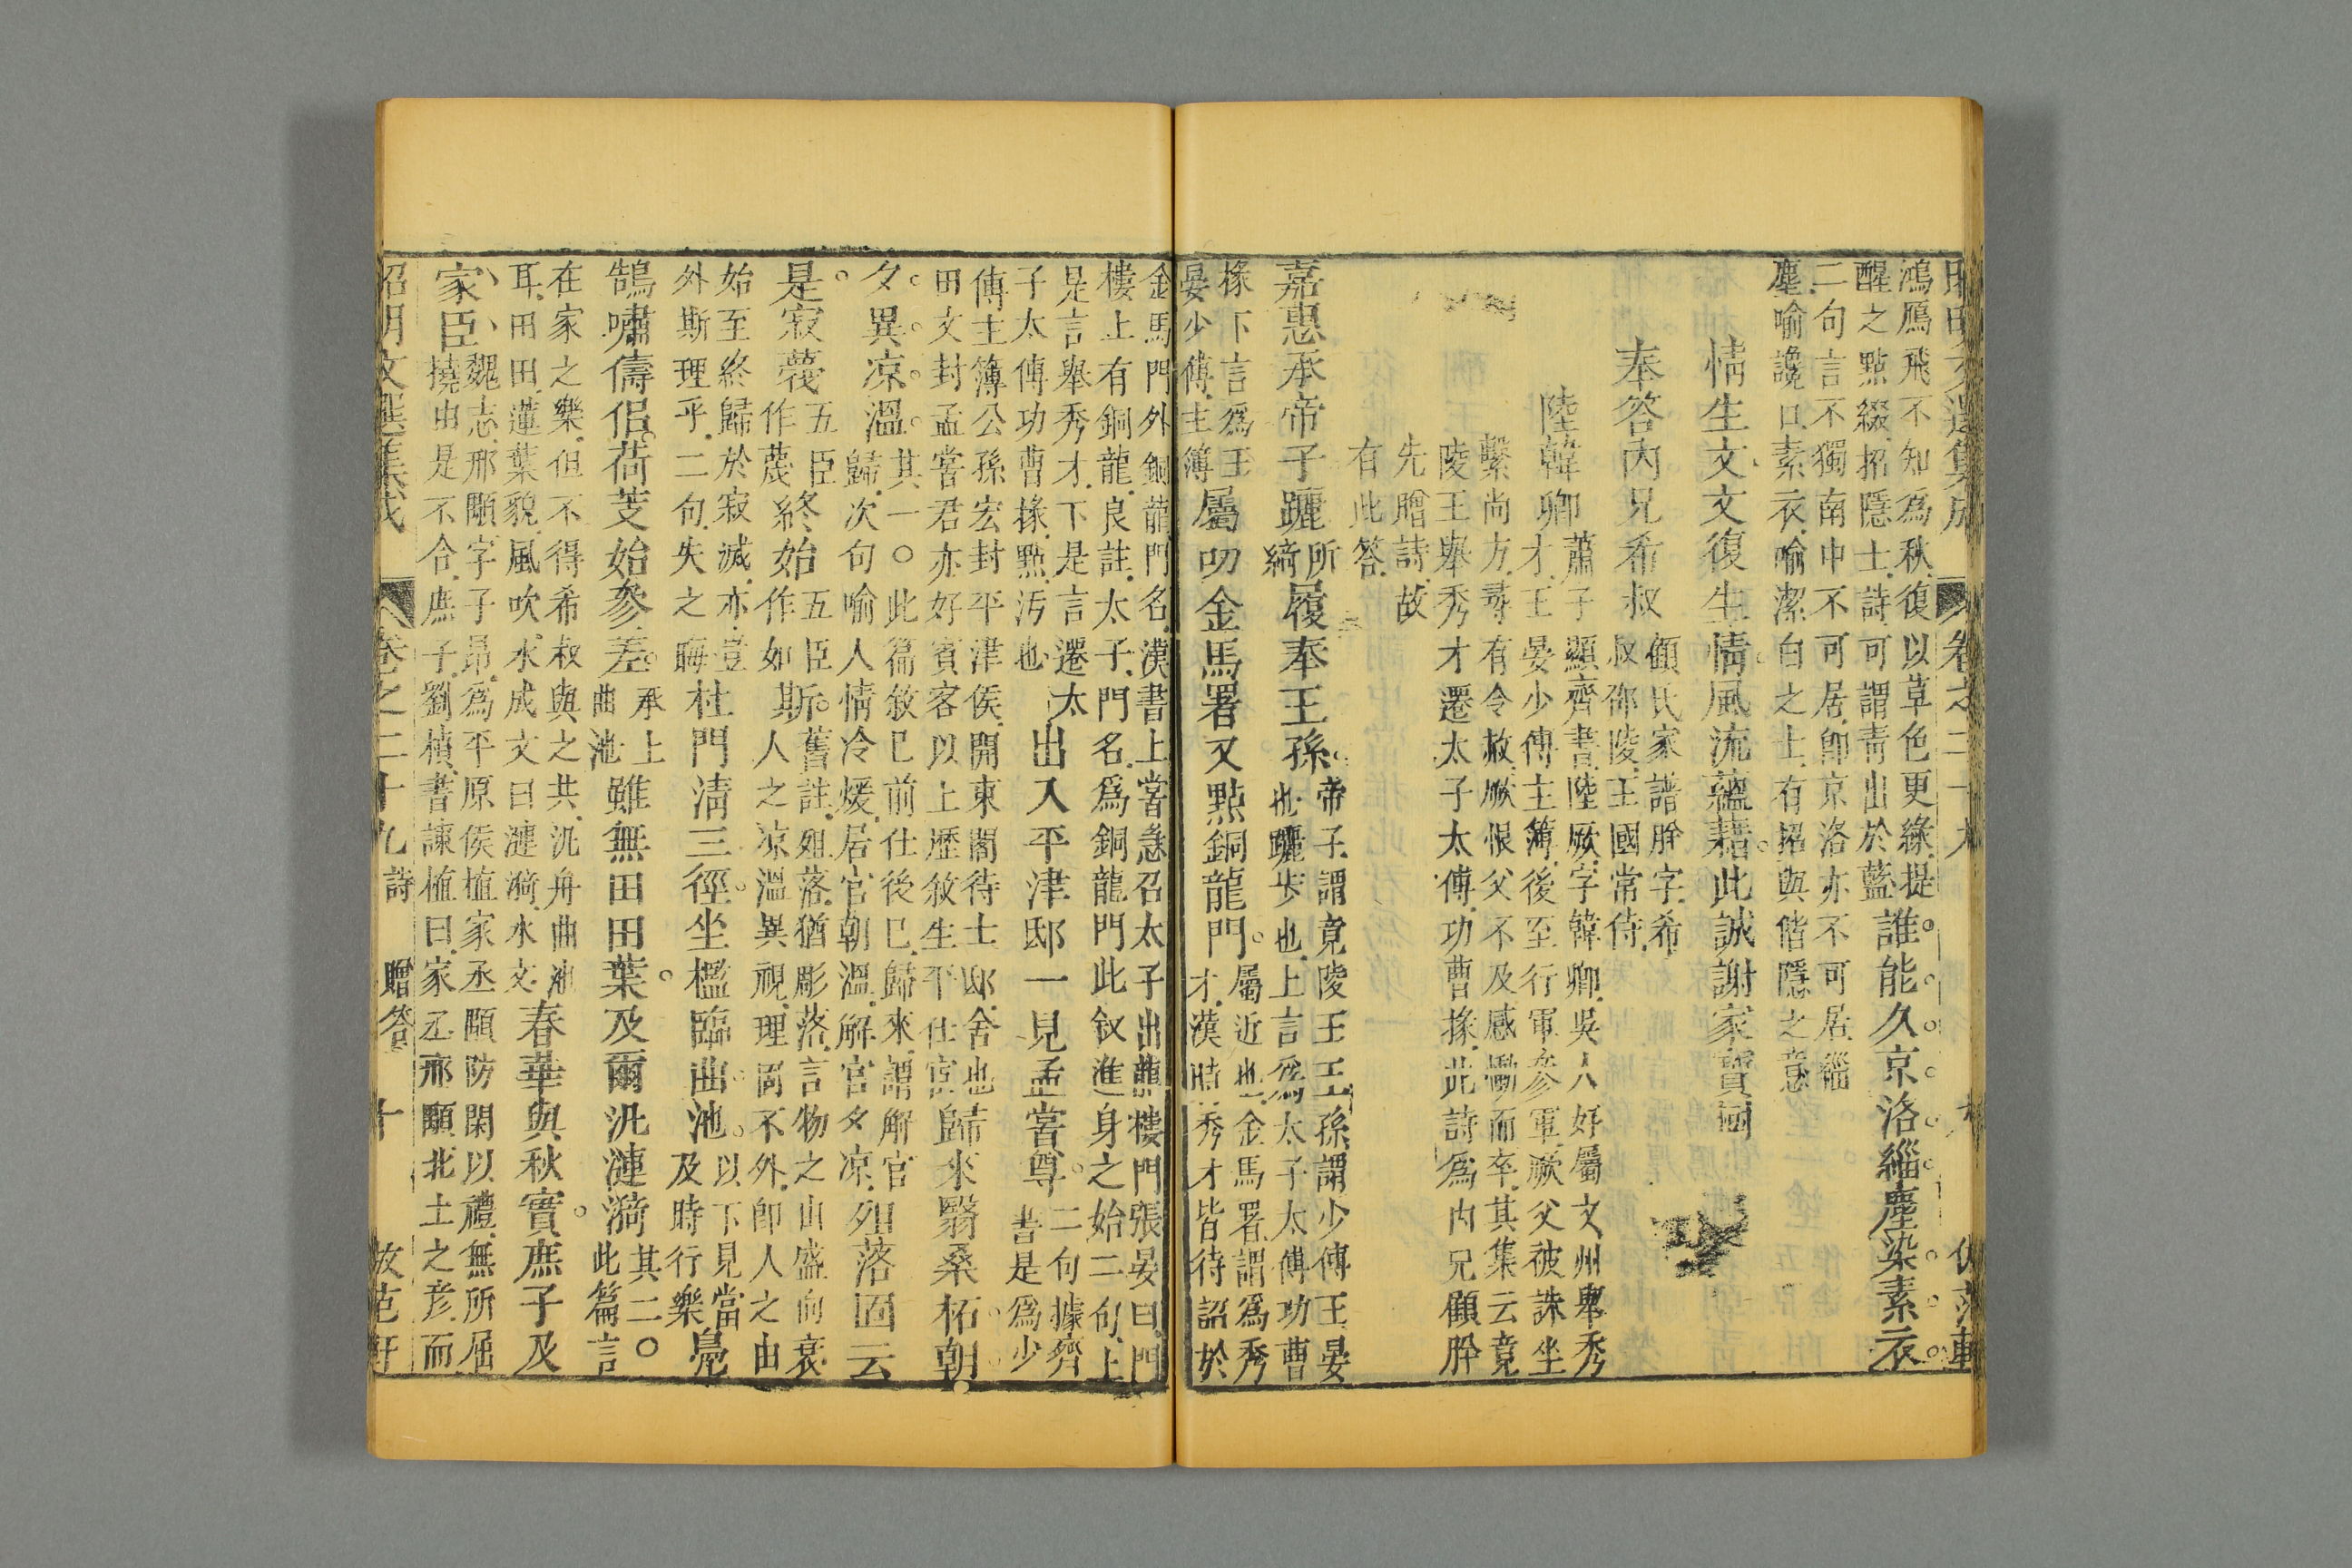 昭明文選集成
卷之二十九
鴻鴈飛不知爲秋復以草色更綠提
醒之點綴招隱士詩可謂青出於藍
誰能久京洛緇塵染素衣
二句言不獨南中不可居卽京洛亦不可居緇
塵喻讒口素衣喻潔白之士有招與偕隱之意
情生文文復生情風流蘊藉此誠謝家寶
奉答內兄希叔
顧氏家譜肸字希
叔邵陵王國常侍
陸韓卿
蕭子顯齊書陸厥字韓卿吳人好屬文州舉秀
才王晏少傅主簿後至行軍參軍厥父被誅坐
繫尚方尋有令赦厥恨父不及感慟而卒其集云竟
陵王舉秀才遷太子太傅功曹掾此詩爲內兄顧肸
先贈詩故
有此答
嘉惠承帝子躧
所
綺
履奉王孫
帝子謂竟陵王王孫謂少傅王晏
也躧步也上言爲太子太傅功曹
掾下言爲王
晏少傅主簿
屬叨金馬署又點銅龍門
屬近也金馬署謂爲秀
才漢時秀才皆待詔於
金馬門外銅龍門名漢書上嘗急召太子出龍樓門張晏曰門
樓上有銅龍良註太子門名爲銅龍門此叙進身之始二句上
是言舉秀才下是言遷太
子太傅功曹掾點汚也
出入平津邸一見孟嘗尊
二句據齊
書是爲少
傅主簿公孫宏封平津侯開東閣待士邸舍也
田文封孟嘗君亦好賓客以上歷敘生平仕宦
歸來翳桑柘朝
夕異凉溫
其一○此篇敘已前仕後已歸來謂解官
歸次句喻人情冷煖居官朝溫解官夕凉
徂落固云
是寂蔑
五臣
作蔑
終始
五臣
作如
斯
舊註徂落猶彫落言物之由盛向衰
人之凉溫異視理固不外卽人之由
始至終歸於寂滅亦豈
外斯理乎二句失之晦
杜門清三徑坐檻臨曲池
以下見當
及時行樂
鳧
鵠嘯儔侶荷芰始參差
承上
曲池
雖無田田葉及爾汎漣漪
其二○
此篇言
在家之樂但不得希叔與之共汎舟曲池
耳田田蓮葉貌風吹水成文曰漣漪水文
春華與秋實庶子及
家臣
魏志邢顒字子昂爲平原侯植家丞顒防閑以禮無所屈
撓由是不合庶子劉楨書諫植曰家丞邢顒北土之彥而
昭明文選集成
卷之二十九
詩
贈答
十
倣范軒